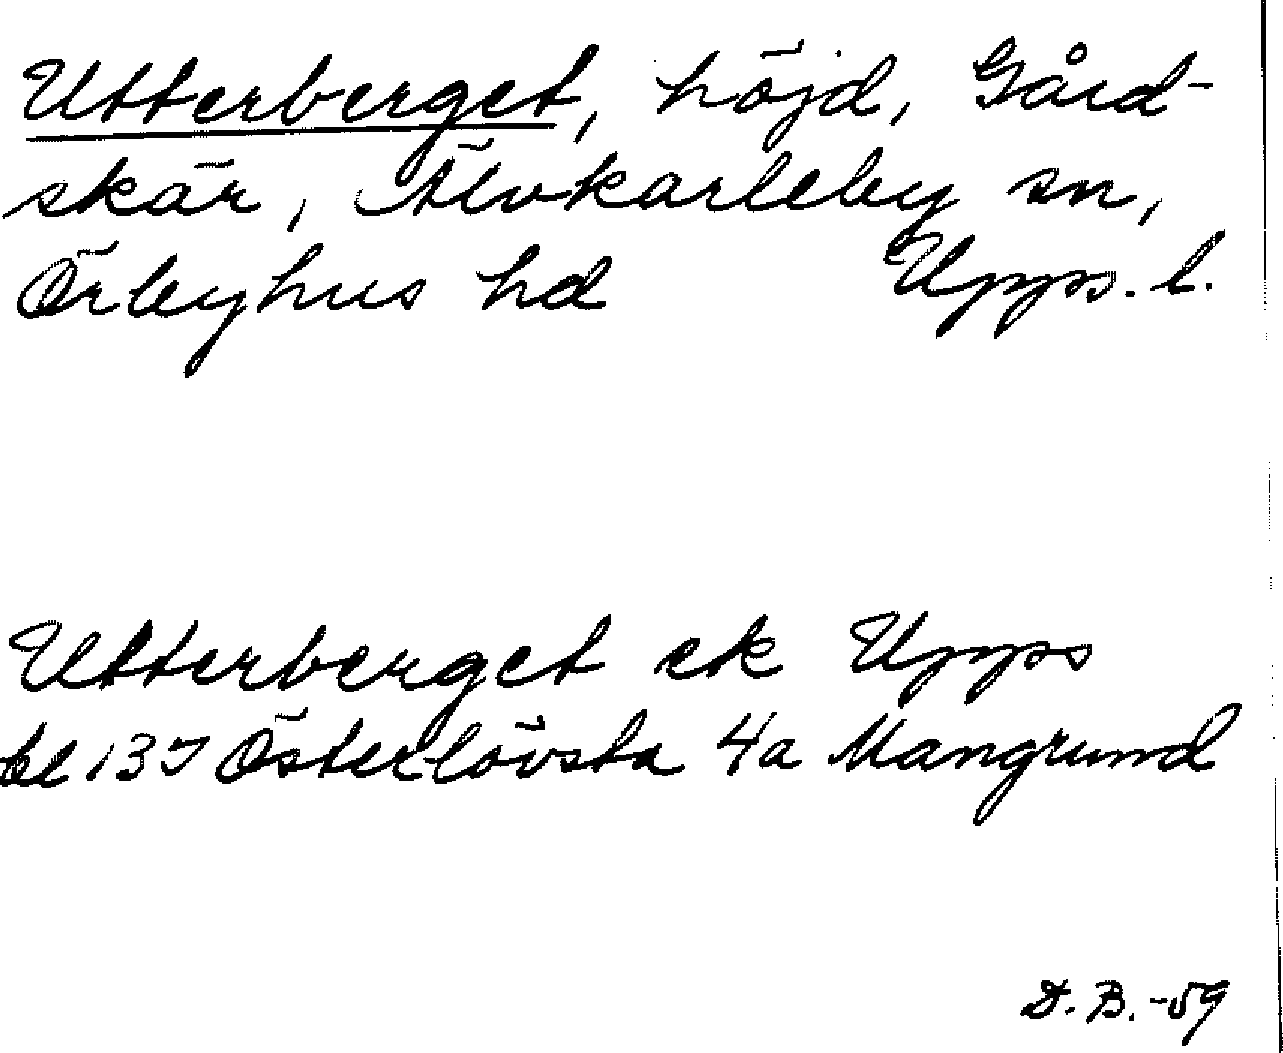 Utterberget, höjd, Gård-
skär, Älvkarleby sn,
Örbyhus hd Upps. l.
Utterberget ek Upps
bl 137 Österlövsta 4a Mangrund
D. B. -59